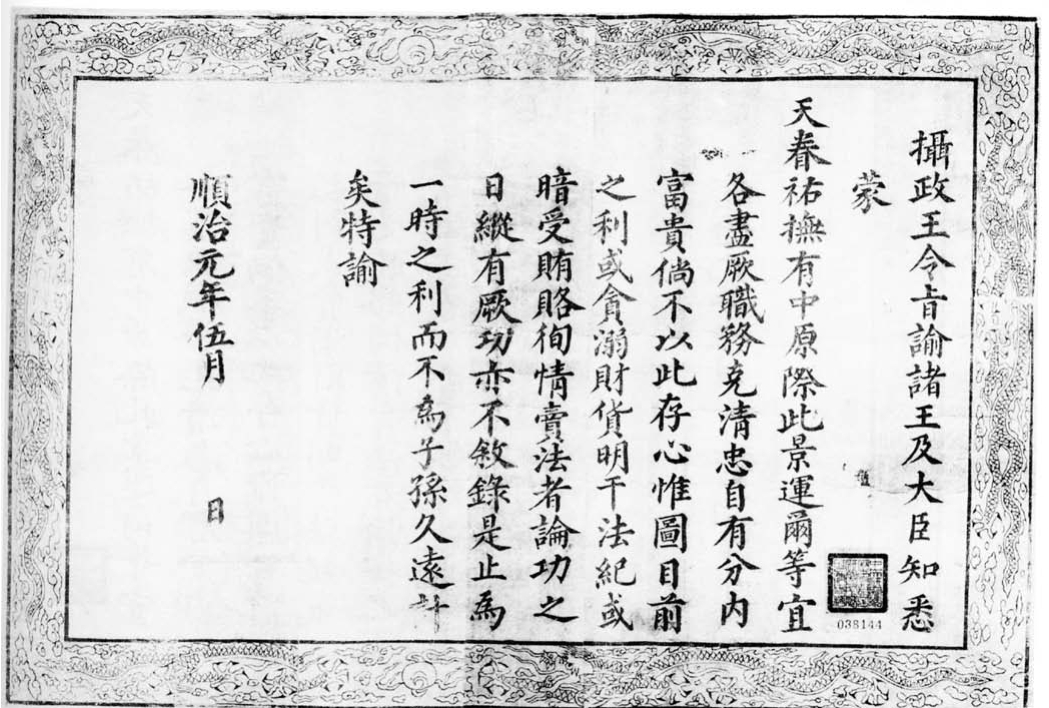 攝政王令旨諭諸王及大臣知悉
蒙
天眷祐撫有中原際此景運爾等宜
各盡厥職務克清忠自有分內
富貴倘不以此存心惟圖目前
之利或貪溺財貨明干法紀或
暗受賄賂徇情賣法者論功之
日縱有厥功亦不敘錄是止為
一時之利而不為子孫久遠計
矣特諭
順治元年伍月　　日
038144